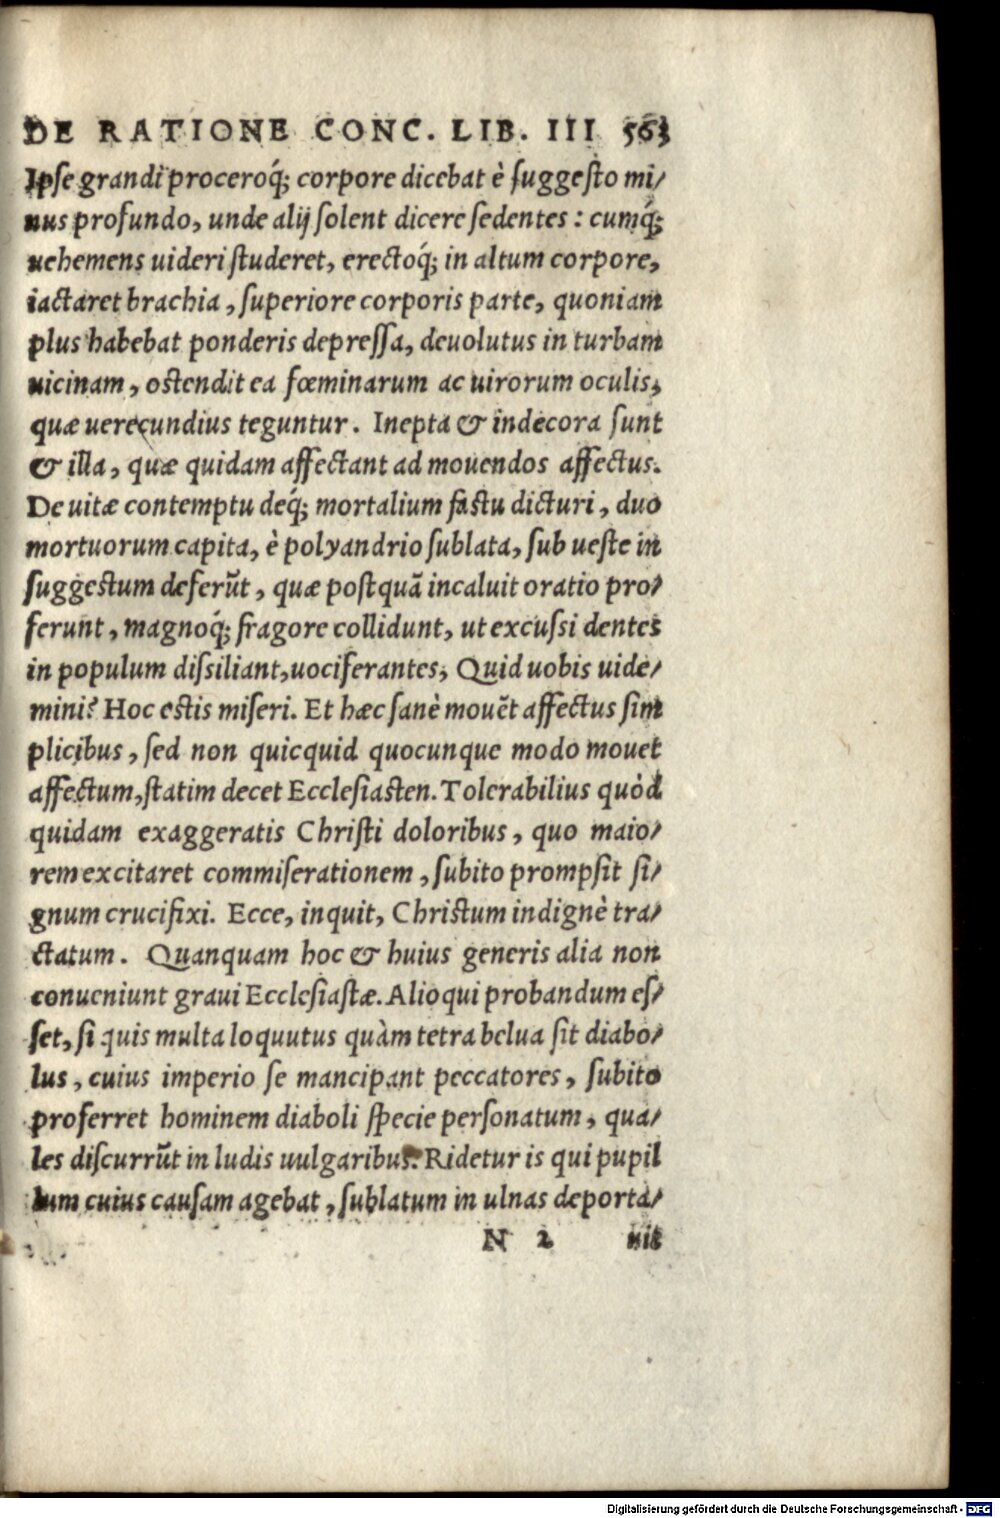 DE RATIONE CONC. LIB. III 563
Ipse grandi proceroq́; corpore dicebat è suggesto mi/
nus profundo, unde alij solent dicere sedentes : cumq́;
uehemens uideri studeret, erectoq́; in altum corpore,
iactaret brachia, superiore corporis parte, quoniam
plus habebat ponderis depressa, deuolutus in turbam
uicinam, ostendit ea fœminarum ac uirorum oculis,
quæ uerecundius teguntur. Inepta & indecora sunt
& illa, quæ quidam affectant ad mouendos affectus.
De uitæ contemptu deq́; mortalium fastu dicturi, duo
mortuorum capita, è polyandrio sublata, sub ueste in
suggestum deferũt, quæ postquã incaluit oratio pro/
ferunt, magnoq́; fragore collidunt, ut excussi dentes
in populum dissiliant, uociferantes, Quid uobis uide/
mini? Hoc estis miseri. Et hæc sanè mouẽt affectus sim
plicibus, sed non quicquid quocunque modo mouet
affectum, statim decet Ecclesiasten. Tolerabilius quòd
quidam exaggeratis Christi doloribus, quo maio/
rem excitaret commiserationem, subito prompsit si/
gnum crucifixi. Ecce, inquit, Christum indignè tra/
ctatum. Quanquam hoc & huius generis alia non
conueniunt graui Ecclesiastæ. Alioqui probandum es/
set, si quis multa loquutus quàm tetra belua sit diabo/
lus, cuius imperio se mancipant peccatores, subito
proferret hominem diaboli specie personatum, qua/
les discurrũt in ludis uulgaribus. Ridetur is qui pupil
lum cuius causam agebat, sublatum in ulnas deporta/
N 2 uit
Digitalisierung gefördert durch die Deutsche Forschungsgemeinschaft - DFG